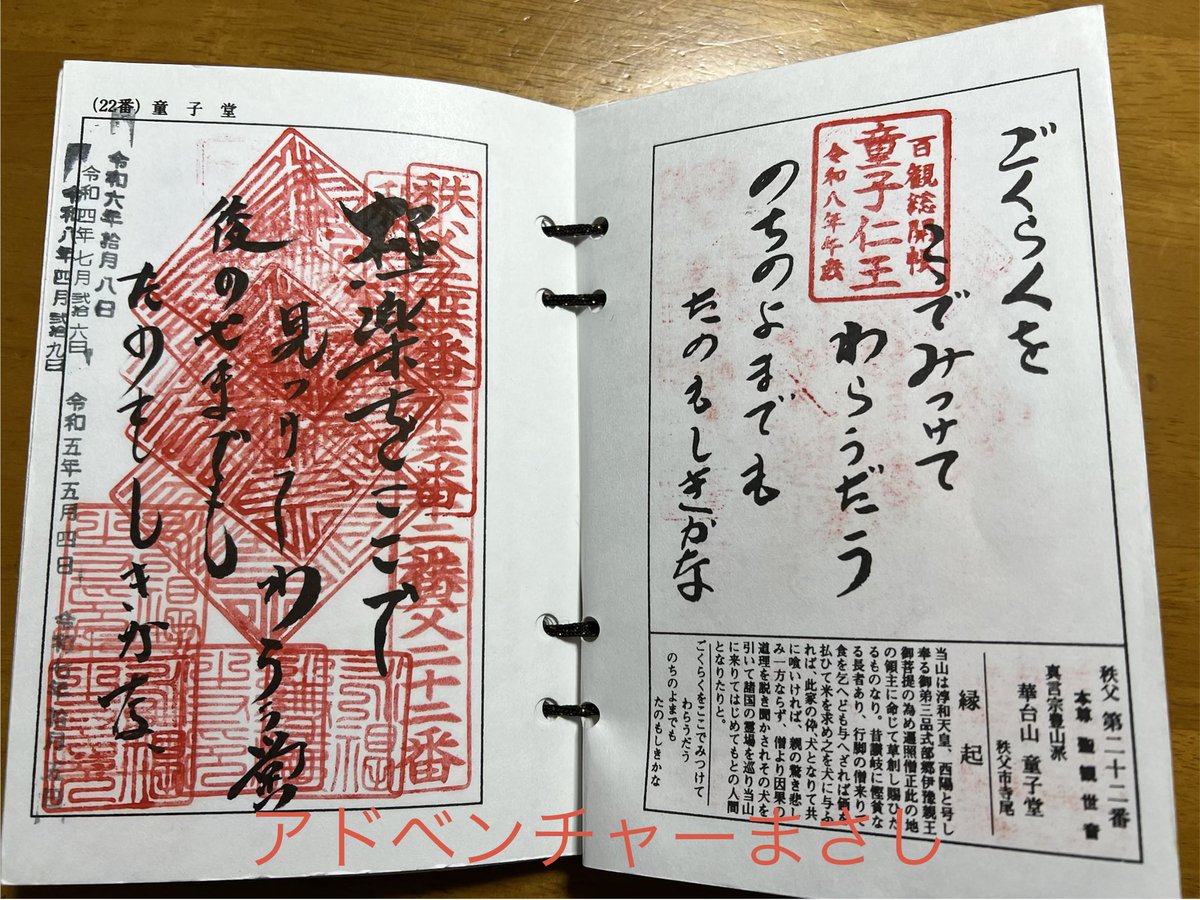 (22番) 童子堂
令和六年拾月八日
令和四年七月弐拾六日
令和八年四月弐拾九日
令和五年五月四日
極楽をここで
見つけてわらう堂
後のせまでも
たのもしきかな
ごくらくを
ここでみつけて
わらうだう
のちのよまでも
たのもしきかな
百観総開帳
童子仁王
令和八年午歳
秩父 第二十二番
本尊 聖観世音
真言宗豊山派
華台山 童子堂
秩父市寺尾
縁起
当山は淳和天皇、西陽と号し
奉る御弟三品式部郷伊豫親王
御菩提の為め遍照僧正此の地
の領主に命じて草創し賜ひた
るものなり。昔讃岐に慳貧な
る長者あり、行脚の僧来りて
食を乞へども与へざれば価を
払ひて米を求め之を犬に与ふ
れば、此家の伜、犬となりて共
に喰いければ、親の驚き悲し
み一方ならず、僧より因果の
道理を説き聞かされその犬を
引いて諸国の霊場を巡り当山
に来りてはじめてもとの人間
となりたりと。
ごくらくをここでみつけて
わらうだう
のちのよまでも
たのもしきかな
アドベンチャーまさし